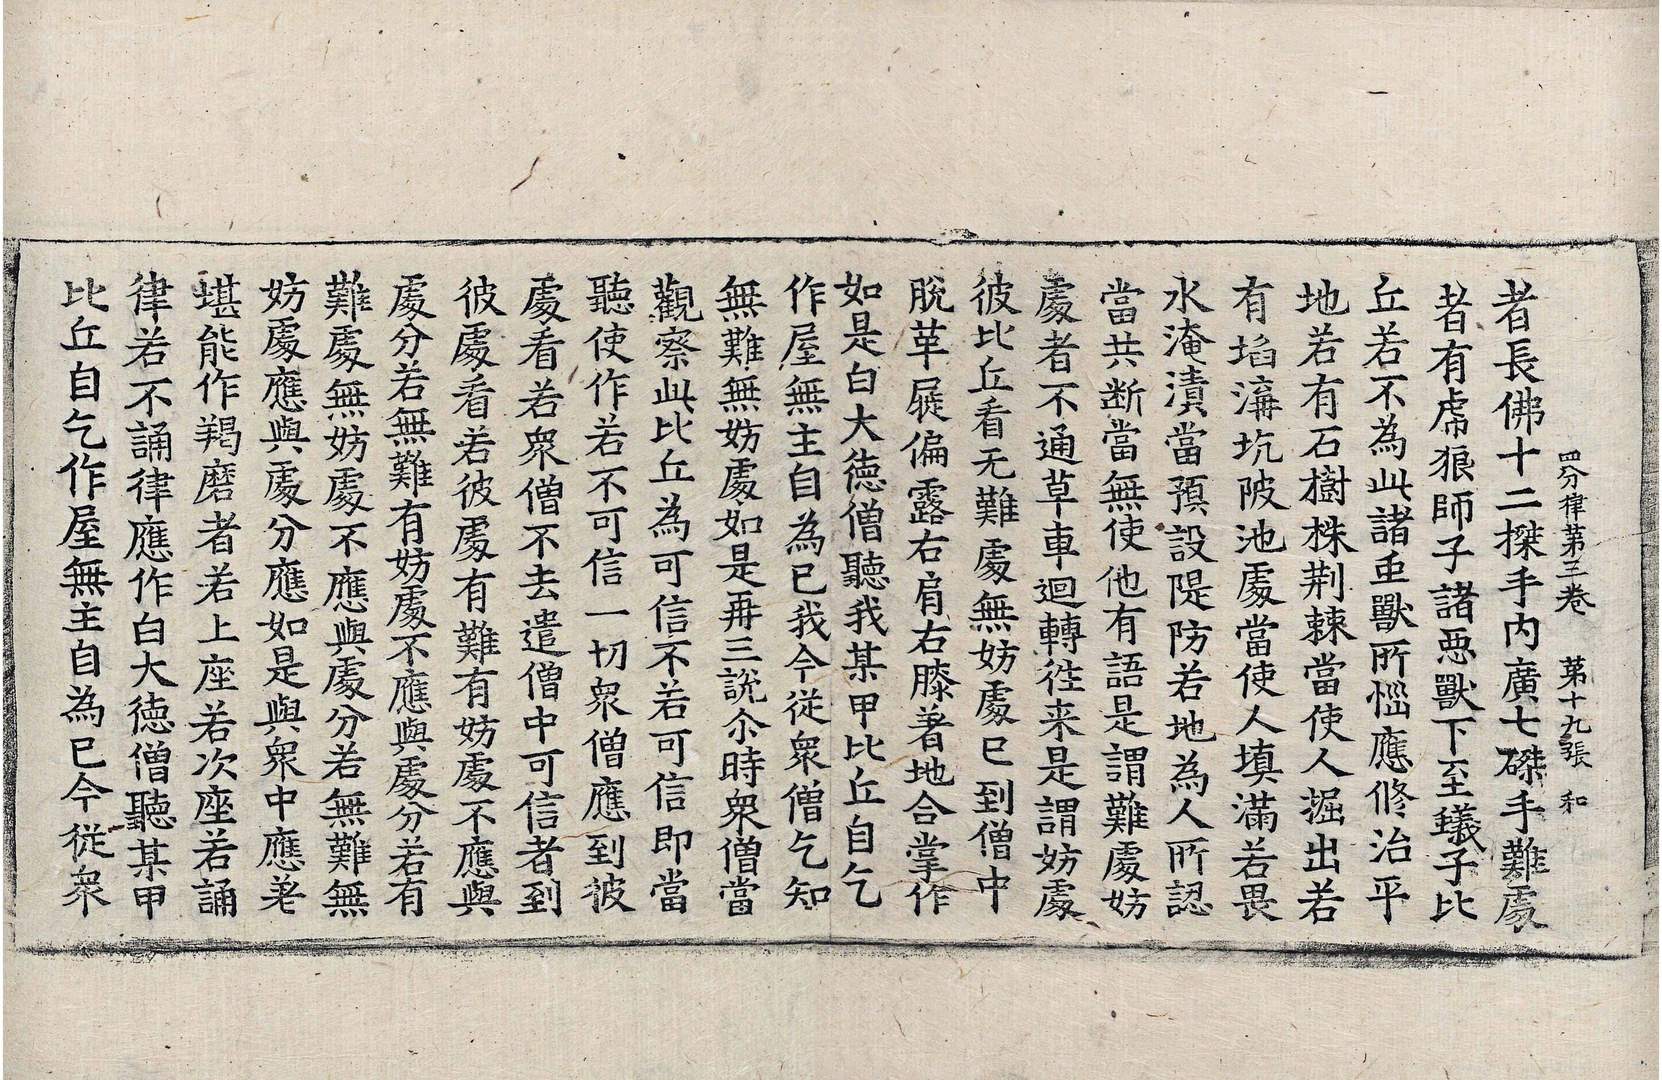 四分律第三卷　第十九張　和
者長佛十二搩手內廣七磔手難處
者有虎狼師子諸惡獸下至蟻子比
丘若不為此諸虫獸所惱應修治平
地若有石樹株荆棘當使人掘出若
有埳溝坑陂池處當使人填滿若畏
水淹漬當預設隄防若地為人所認
當共断當無使他有語是謂難處妨
處者不通草車迴轉往来是謂妨處
彼比丘看无難處無妨處已到僧中
脫革屣偏露右肩右膝著地合掌作
如是白大德僧聽我某甲比丘自乞
作屋無主自為已我今從衆僧乞知
無難無妨處如是再三說尒時衆僧當
觀察此比丘為可信不若可信即當
聽使作若不可信一切衆僧應到彼
處看若衆僧不去遣僧中可信者到
彼處看若彼處有難有妨處不應與
處分若無難有妨處不應與處分若有
難處無妨處不應與處分若無難無
妨處應與處分應如是與衆中應差
堪能作羯磨者若上座若次座若誦
律若不誦律應作白大德僧聽某甲
比丘自乞作屋無主自為已今從衆